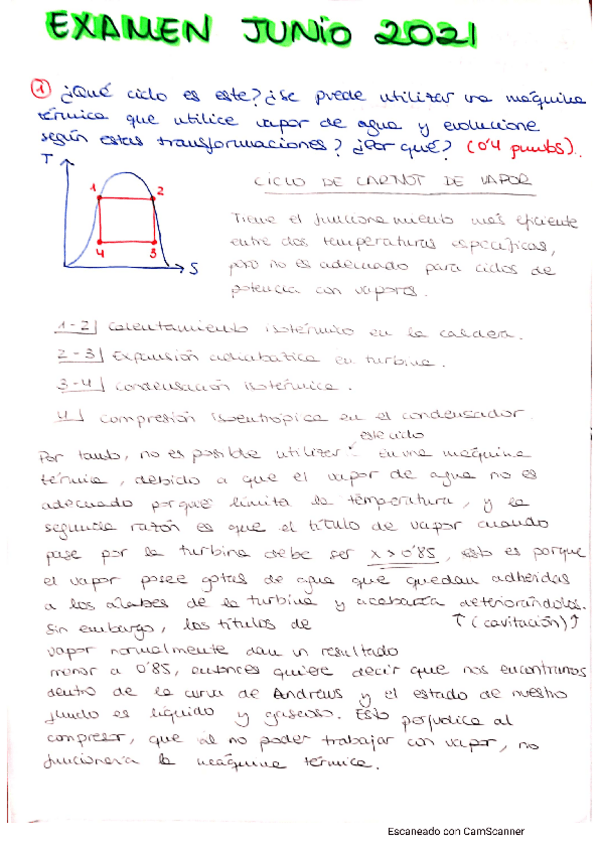 EXAMEN JUNIO 2021
① ¿Qué ciclo es este? ¿se puede utilizar una máquina
térmica que utilice vapor de agua y evolucione
según estas transformaciones? ¿Por qué? (0'4 puntos).
T
1
2
4
3
S
CICLO DE CARNOT DE VAPOR
Tiene el funcionamiento más eficiente
entre dos temperaturas específicas,
pero no es adecuado para ciclos de
potencia con vapores.
1-2| Calentamiento isotérmico en la caldera.
2-3| Expansión adiabática en turbina.
3-4| condensación isotérmica.
4| compresión isoentrópica en el condensador.
este ciclo
Por tanto, no es posible utilizar en una máquina
térmica, debido a que el vapor de agua no es
adecuado porque limita la temperatura, y la
segunda razón es que el título de vapor cuando
pase por la turbina debe ser x > 0'85, esto es porque
el vapor posee gotas de agua que quedan adheridas
a los álabes de la turbina y acabaría deteriorándolos.
Sin embargo, los títulos de ↑ (cavitación) ↑
vapor normalmente dan un resultado
menor a 0'85, entonces quiere decir que nos encontramos
dentro de la curva de Andrews y el estado de nuestro
fluido es líquido y gaseoso. Esto perjudica al
compresor, que al no poder trabajar con vapor, no
funcionaría la máquina térmica.
Escaneado con CamScanner